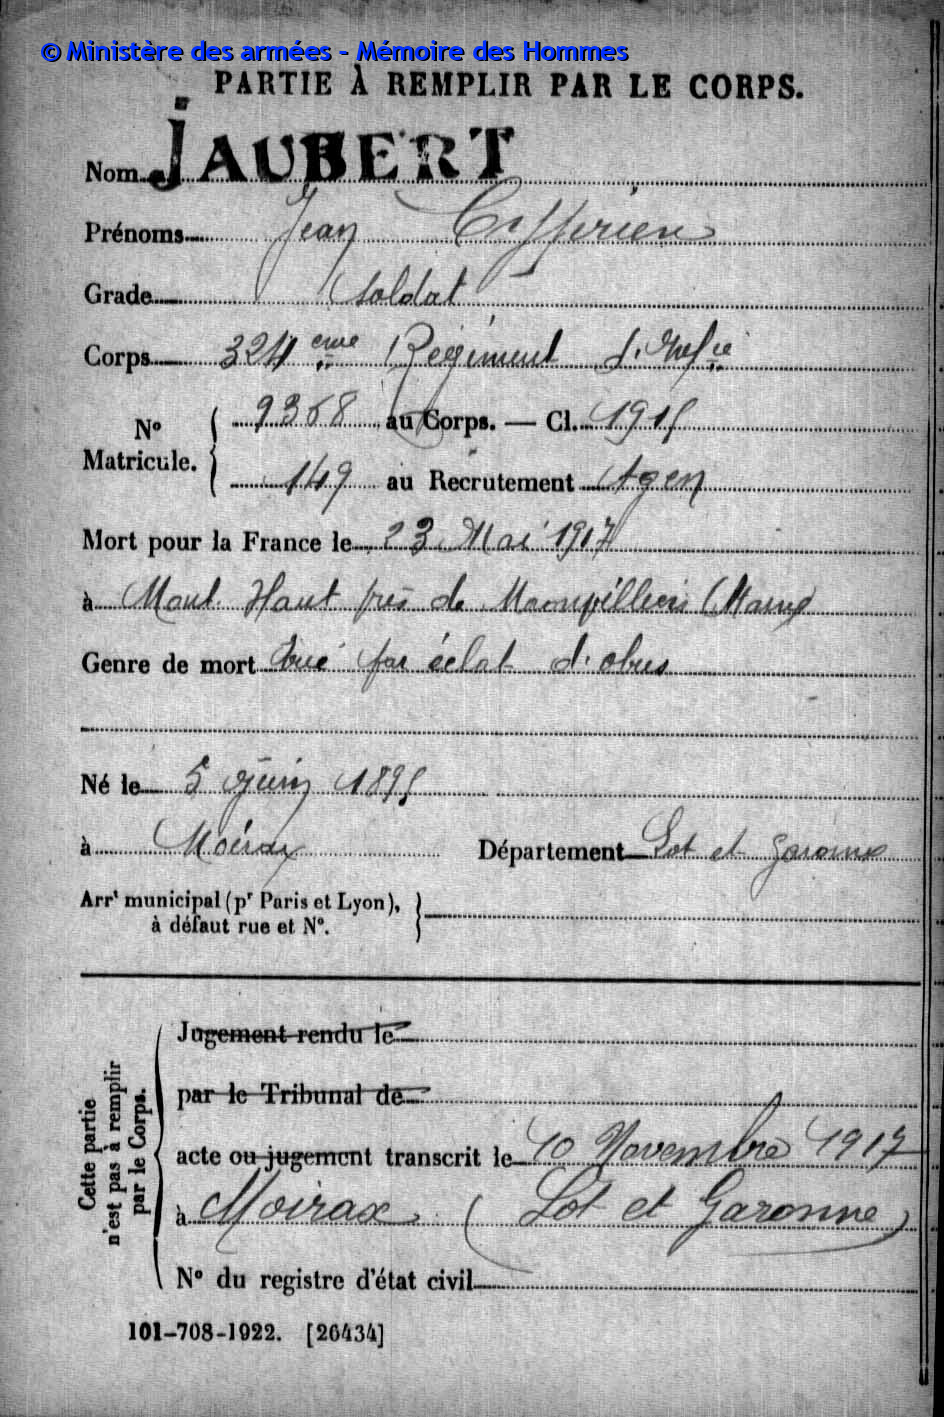 © Ministère des armées - Mémoire des Hommes
PARTIE À REMPLIR PAR LE CORPS.
Nom JAUBERT
Prénoms Jean Cyprien
Grade Soldat
Corps 324 eme Régiment d'Infie
N° Matricule. 9368 au Corps. — Cl. 1915
149 au Recrutement Agen
Mort pour la France le 23 Mai 1917
à Mont Haut près de (Marne)
Genre de mort tué par éclat d'obus
Né le 5 Juin 1895
à Moirax Département Lot et Garonne
Arrt municipal (pr Paris et Lyon),
à défaut rue et N°.
Cette partie n'est pas à remplir par le Corps.
Jugement rendu le
par le Tribunal de
acte ou jugement transcrit le 10 Novembre 1917
à Moirax (Lot et Garonne)
N° du registre d'état civil
101-708-1922. [26434]